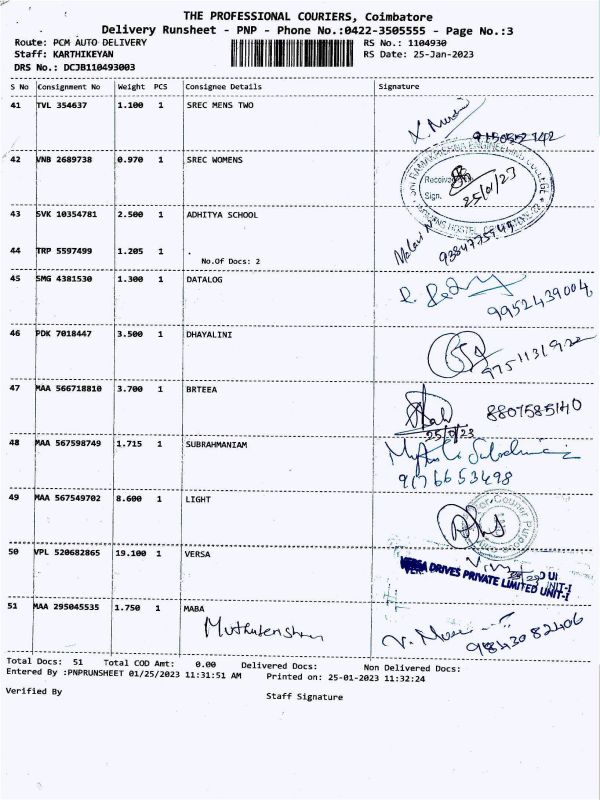 THE PROFESSIONAL COURIERS, Coimbatore
Delivery Runsheet - PNP - Phone No.:0422-3505555 - Page No.:3
Route: PCM AUTO DELIVERY RS No.: 1104930
Staff: KARTHIKEYAN RS Date: 25-Jan-2023
DRS No.: DCJB110493003
S No Consignment No Weight PCS Consignee Details Signature
41 TVL 354637 1.100 1 SREC MENS TWO
42 VNB 2689738 0.970 1 SREC WOMENS
SRI RAMAKRISHNA ENGINEERING COLLEGE
Received
Sign.
25/01/23
43 SVK 10354781 2.500 1 ADHITYA SCHOOL
44 TRP 5597499 1.205 1 .
No.Of Docs: 2
45 SMG 4381530 1.300 1 DATALOG
9952439004
46 PDK 7018447 3.500 1 DHAYALINI
47 MAA 566718810 3.700 1 BRTEEA
8807585140
48 MAA 567598749 1.715 1 SUBRAHMANIAM
9176653498
49 MAA 567549702 8.600 1 LIGHT
50 VPL 520682865 19.100 1 VERSA
VERSA DRIVES PRIVATE LIMITED UNIT-I
51 MAA 295045535 1.750 1 MABA
9843082406
Total Docs: 51 Total COD Amt: 0.00 Delivered Docs: Non Delivered Docs:
Entered By :PNPRUNSHEET 01/25/2023 11:31:51 AM Printed on: 25-01-2023 11:32:24
Verified By Staff Signature